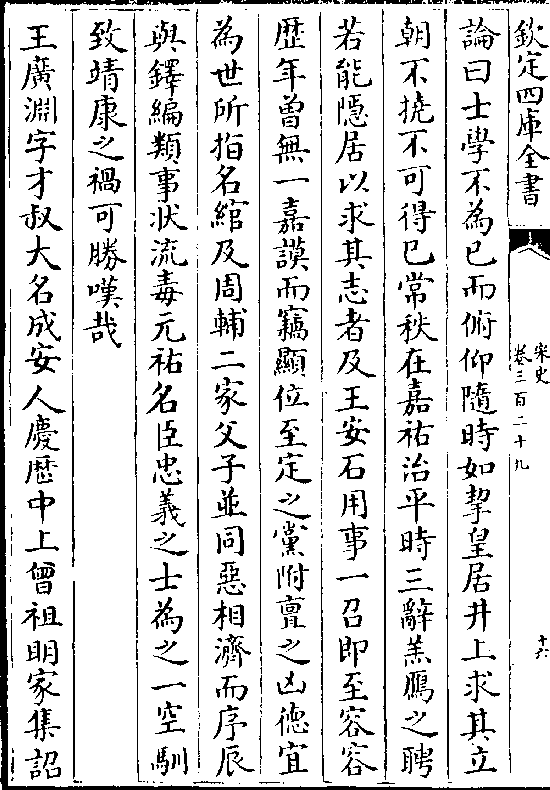 欽定四庫全書
宋史
卷三百二十九
十六
論曰士學不為已而俯仰隨時如挈皇居井上求其立
朝不撓不可得已常秩在嘉祐治平時三辭羔鴈之聘
若能隱居以求其志者及王安石用事一召即至容容
歴年曽無一嘉謨而竊顯位至定之黨附亶之凶德宜
為世所指名綰及周輔二家父子並同惡相濟而序辰
與鐸編類事狀流毒元祐名臣忠義之士為之一空馴
致靖康之禍可勝嘆哉
王廣淵字才叔大名成安人慶歴中上曾祖明家集詔